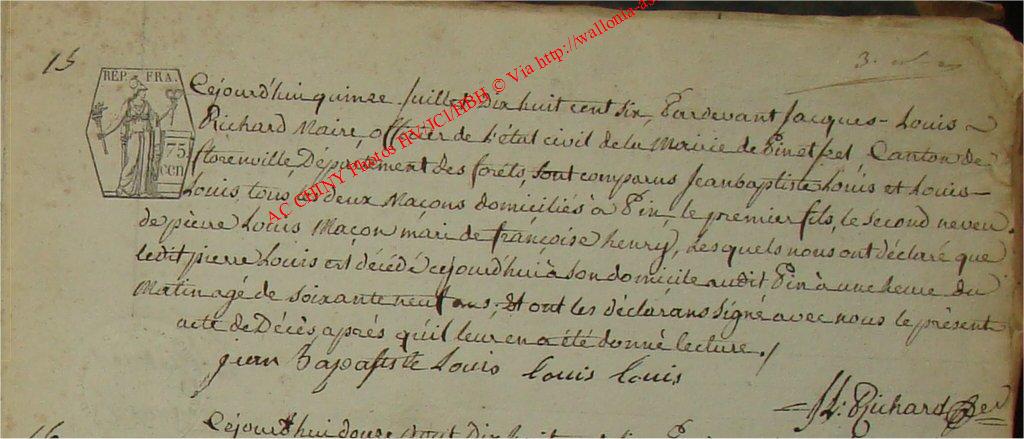 15
REP. FRA.
75
cen
AC CHINY Photos HV/JCI/HBH © Via http://wallonia-as
Cejourd'hui quinze Juillet Dix huit cent six, Pardevant Jacques-Louis
Richard Maire, officier de L'état civil de la Mairie de Pin et Izel Canton de
florenville, Département des forêts, sont comparus Jeanbaptiste Louis et Louis-
Louis, tous deux Maçons domiciliés à Pin, le premier fils, le second neveu
de pièrre Louis Maçon mari de françoise henry, Lesquels nous ont déclaré que
ledit pierre Louis est décédé cejourd'hui à son domicile audit Pin à une heure du
Matin agé de soixante neuf ans, Et ont les déclarans signé avec nous le présent
acte de Décès, aprés qu'il leur en a été donné lecture./
jean Bapatiste Louis Louis Louis
JL: Richard
Cejourd'hui douze Aout Dix huit